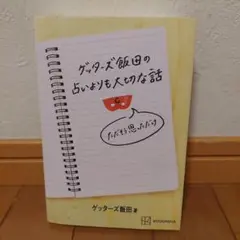 ゲッターズ飯田の
占いよりも大切な話
ただそう思っただけ
ゲッターズ飯田著